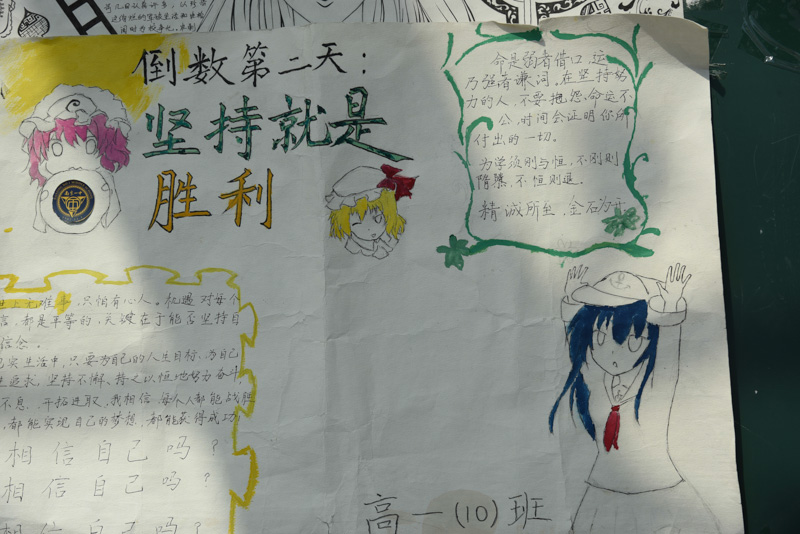 倒数第二天：
坚持就是
胜利
命是弱者借口,运
乃强者谦词。在坚持努
力的人,不要抱怨命运不
公,时间会证明你所
付出的一切。
为学须刚与恒,不刚则
隋隳,不恒则退。
精诚所至,金石为开
世上无难事,只怕有心人。机遇对每个
信,都是平等的,关键在于能否坚持自
信念。
现实生活中,只要为自己的人生目标,为自己
追求,坚持不懈、持之以恒地努力奋斗,
不息,开拓进取,我相信,每个人都能战胜
,都能实现自己的梦想,都能获得成功
相信自己吗?
相信自己吗?
相信自己吗?
高一(10)班